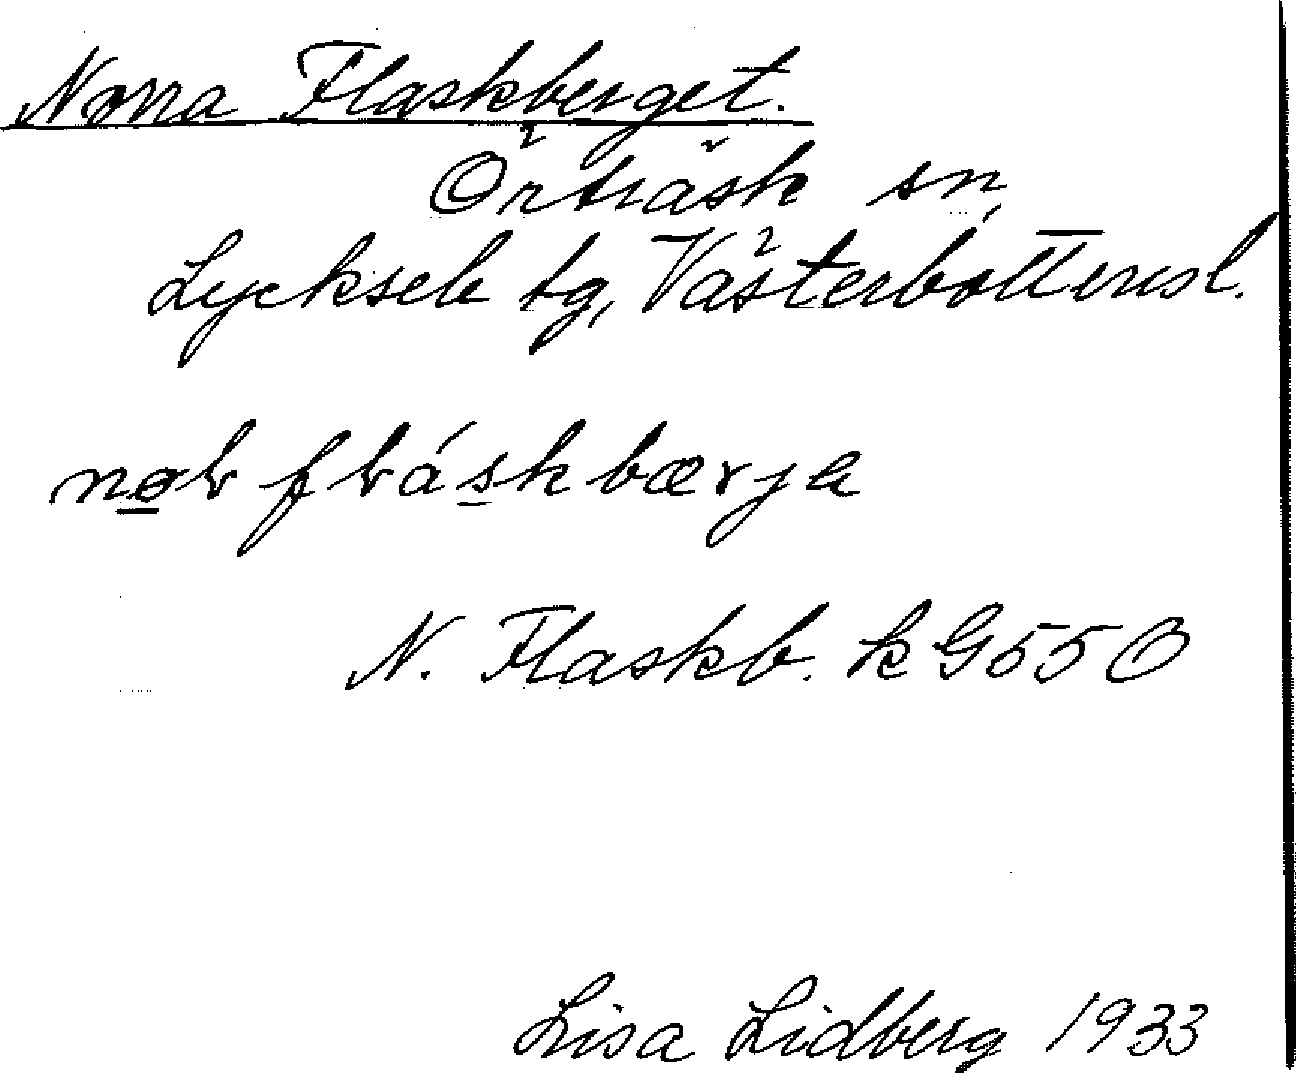 Norra Flaskberget.
Örträsk sn,
Lycksele tg, Västerbottensl.
fláskbærja
N. Flaskb. k G550
Lisa Lidberg 1933